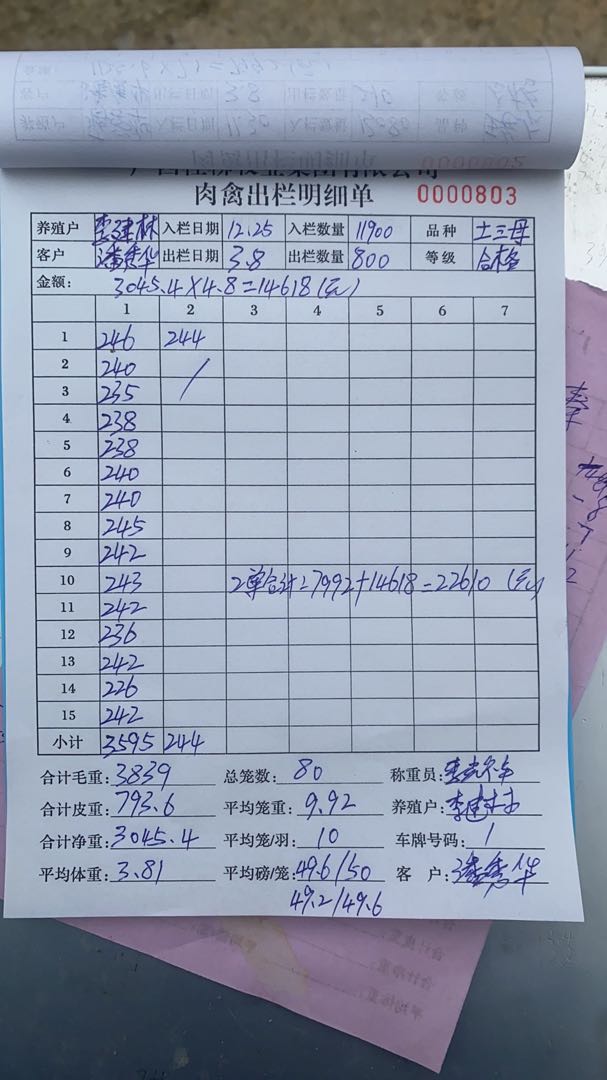 肉禽出栏明细单 0000803
养殖户 李建林 入栏日期 12.25 入栏数量 11900 品种 土三母
客户 潘秀华 出栏日期 3.8 出栏数量 800 等级 合格
金额: 3045.4×4.8=14618(元)
1 2 3 4 5 6 7
1 246 244
2 240 /
3 235
4 238
5 238
6 240
7 240
8 245
9 242
10 243 2单合计=7992+14618=22610(元)
11 242
12 236
13 242
14 226
15 242
小计 3595 244
合计毛重: 3839 总笼数: 80 称重员:
合计皮重: 793.6 平均笼重: 9.92 养殖户: 李建林
合计净重: 3045.4 平均笼/羽: 10 车牌号码: 1
平均体重: 3.81 平均磅/笼: 49.6/50 客户: 潘秀华
49.2/49.6